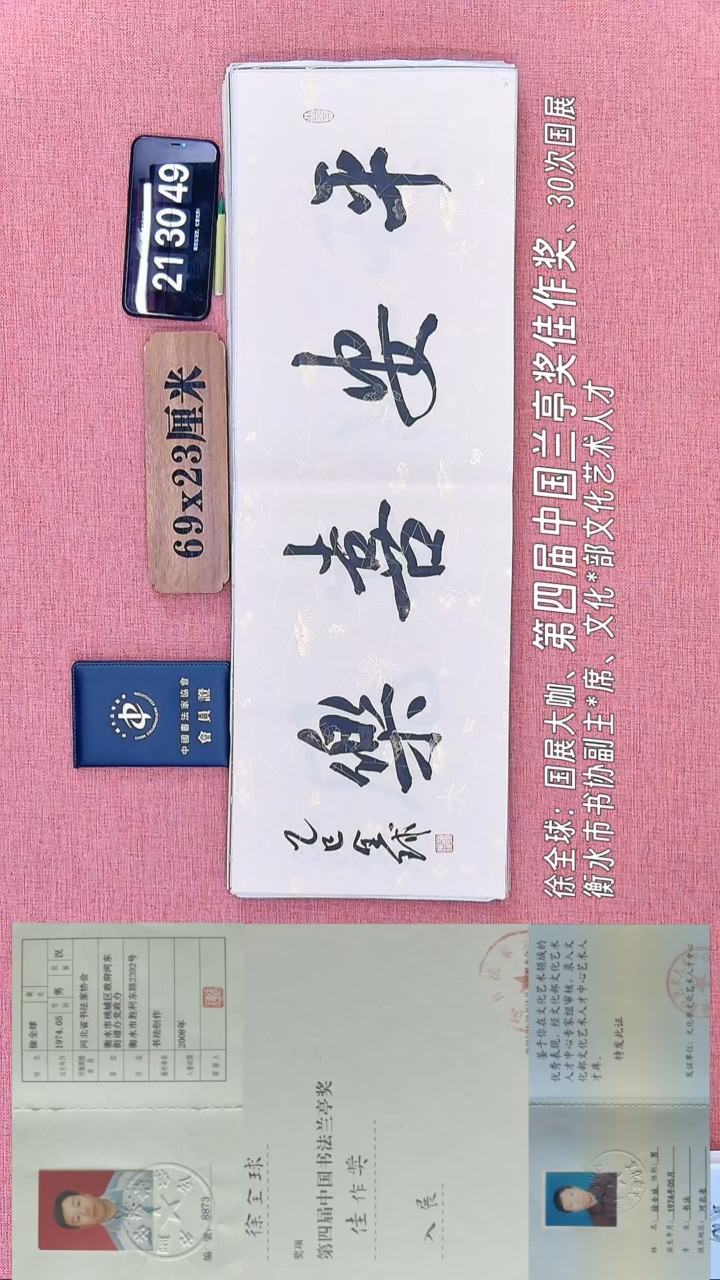 21 30 49
69x23厘米
中國書法家協會
會員證
平安喜樂
乙巳全球
徐全球：国展大咖、第四届中国兰亭奖佳作奖、30次国展
衡水市书协副主*席、文化*部文化艺术人才
姓名 徐全球
出生年月 1974.05 性别 男 民族 汉
河北省书法家协会
衡水市桃城区政府河东
街道办党政办
衡水市胜利东路2392号
书法创作
2008年
编号: 8873
徐全球
奖项
第四届中国书法兰亭奖
佳作奖
入展
鉴于你在文化艺术领域的
优秀表现，经文化部文化艺术
人才中心专家组审核，录入文
化部文化艺术人才中心艺术人
才库。
特发此证
发证单位：文化部文化艺术人才中心
姓名：徐全球 性别：男
出生年月：1974年05月
专业：书法